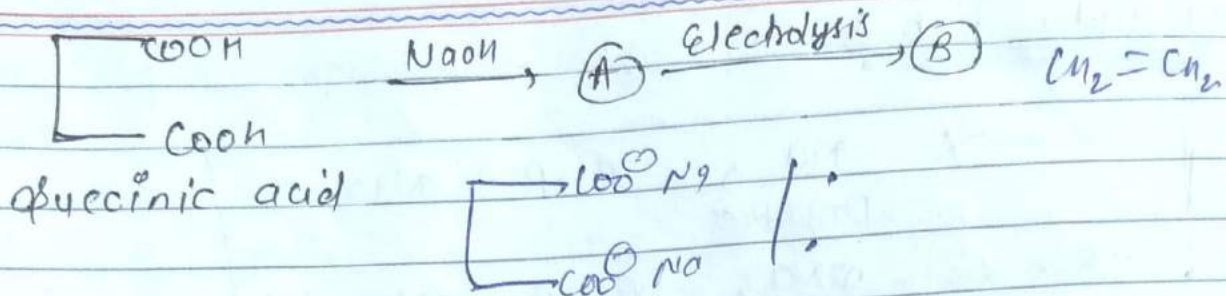 COOH NaOH → A Electrolysis → B CH2 = CH2
COOH
Succinic acid
COO⊖ Na
COO⊖ Na